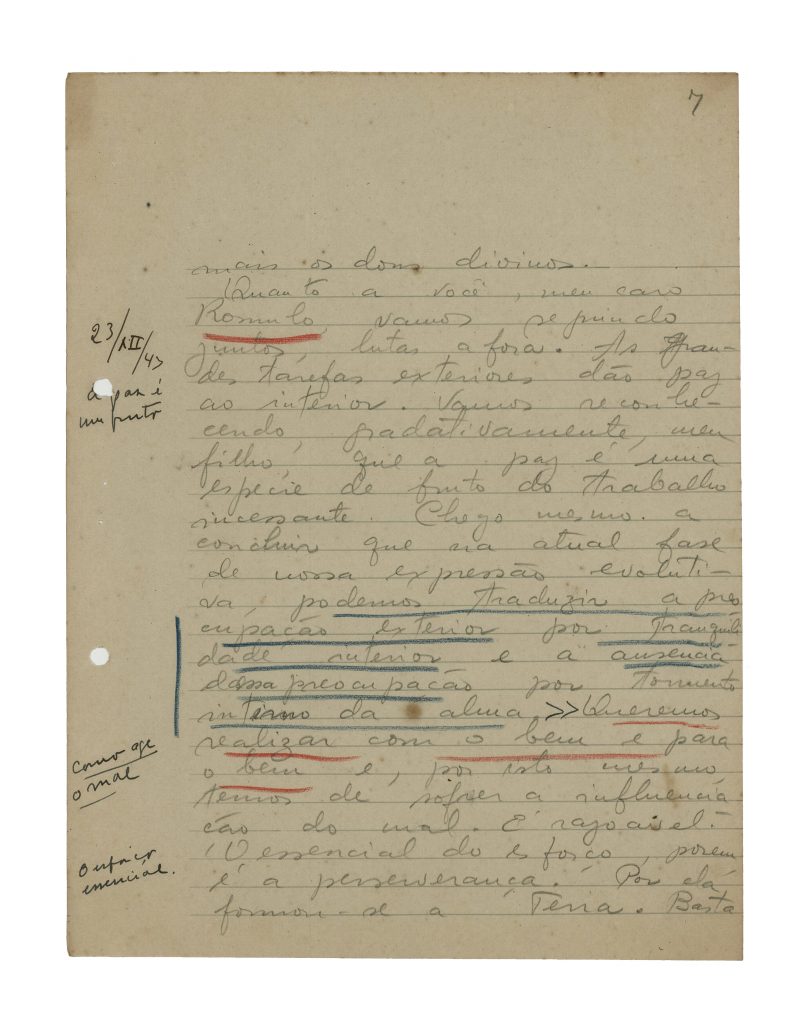 7
mais os dons divinos.-
Quanto a você, meu caro
Romulo, vamos seguindo
juntos, lutas a fora. As gran-
des tarefas exteriores dão paz
ao interior. Vamos reconhe-
cendo, gradativamente, meu
filho, que a paz é uma
espécie de fruto do trabalho
incessante. Chego mesmo a
concluir que na atual fase
de nossa expressão evoluti-
va, podemos traduzir a preo
cupação exterior por tranquili
dade interior e a ausencia
dessa preocupação por tormento
interno da alma >> Queremos
realizar com o bem e para
o bem e, por isto mesmo
temos de sofrer a influencia
ção do mal. É razoavel.-
O essencial do esforço, porem
é a perseverança. Por
formou-se a Terra. Basta
23/XII/43
a paz é
um fruto
Como age
o mal
O esforço
essencial.